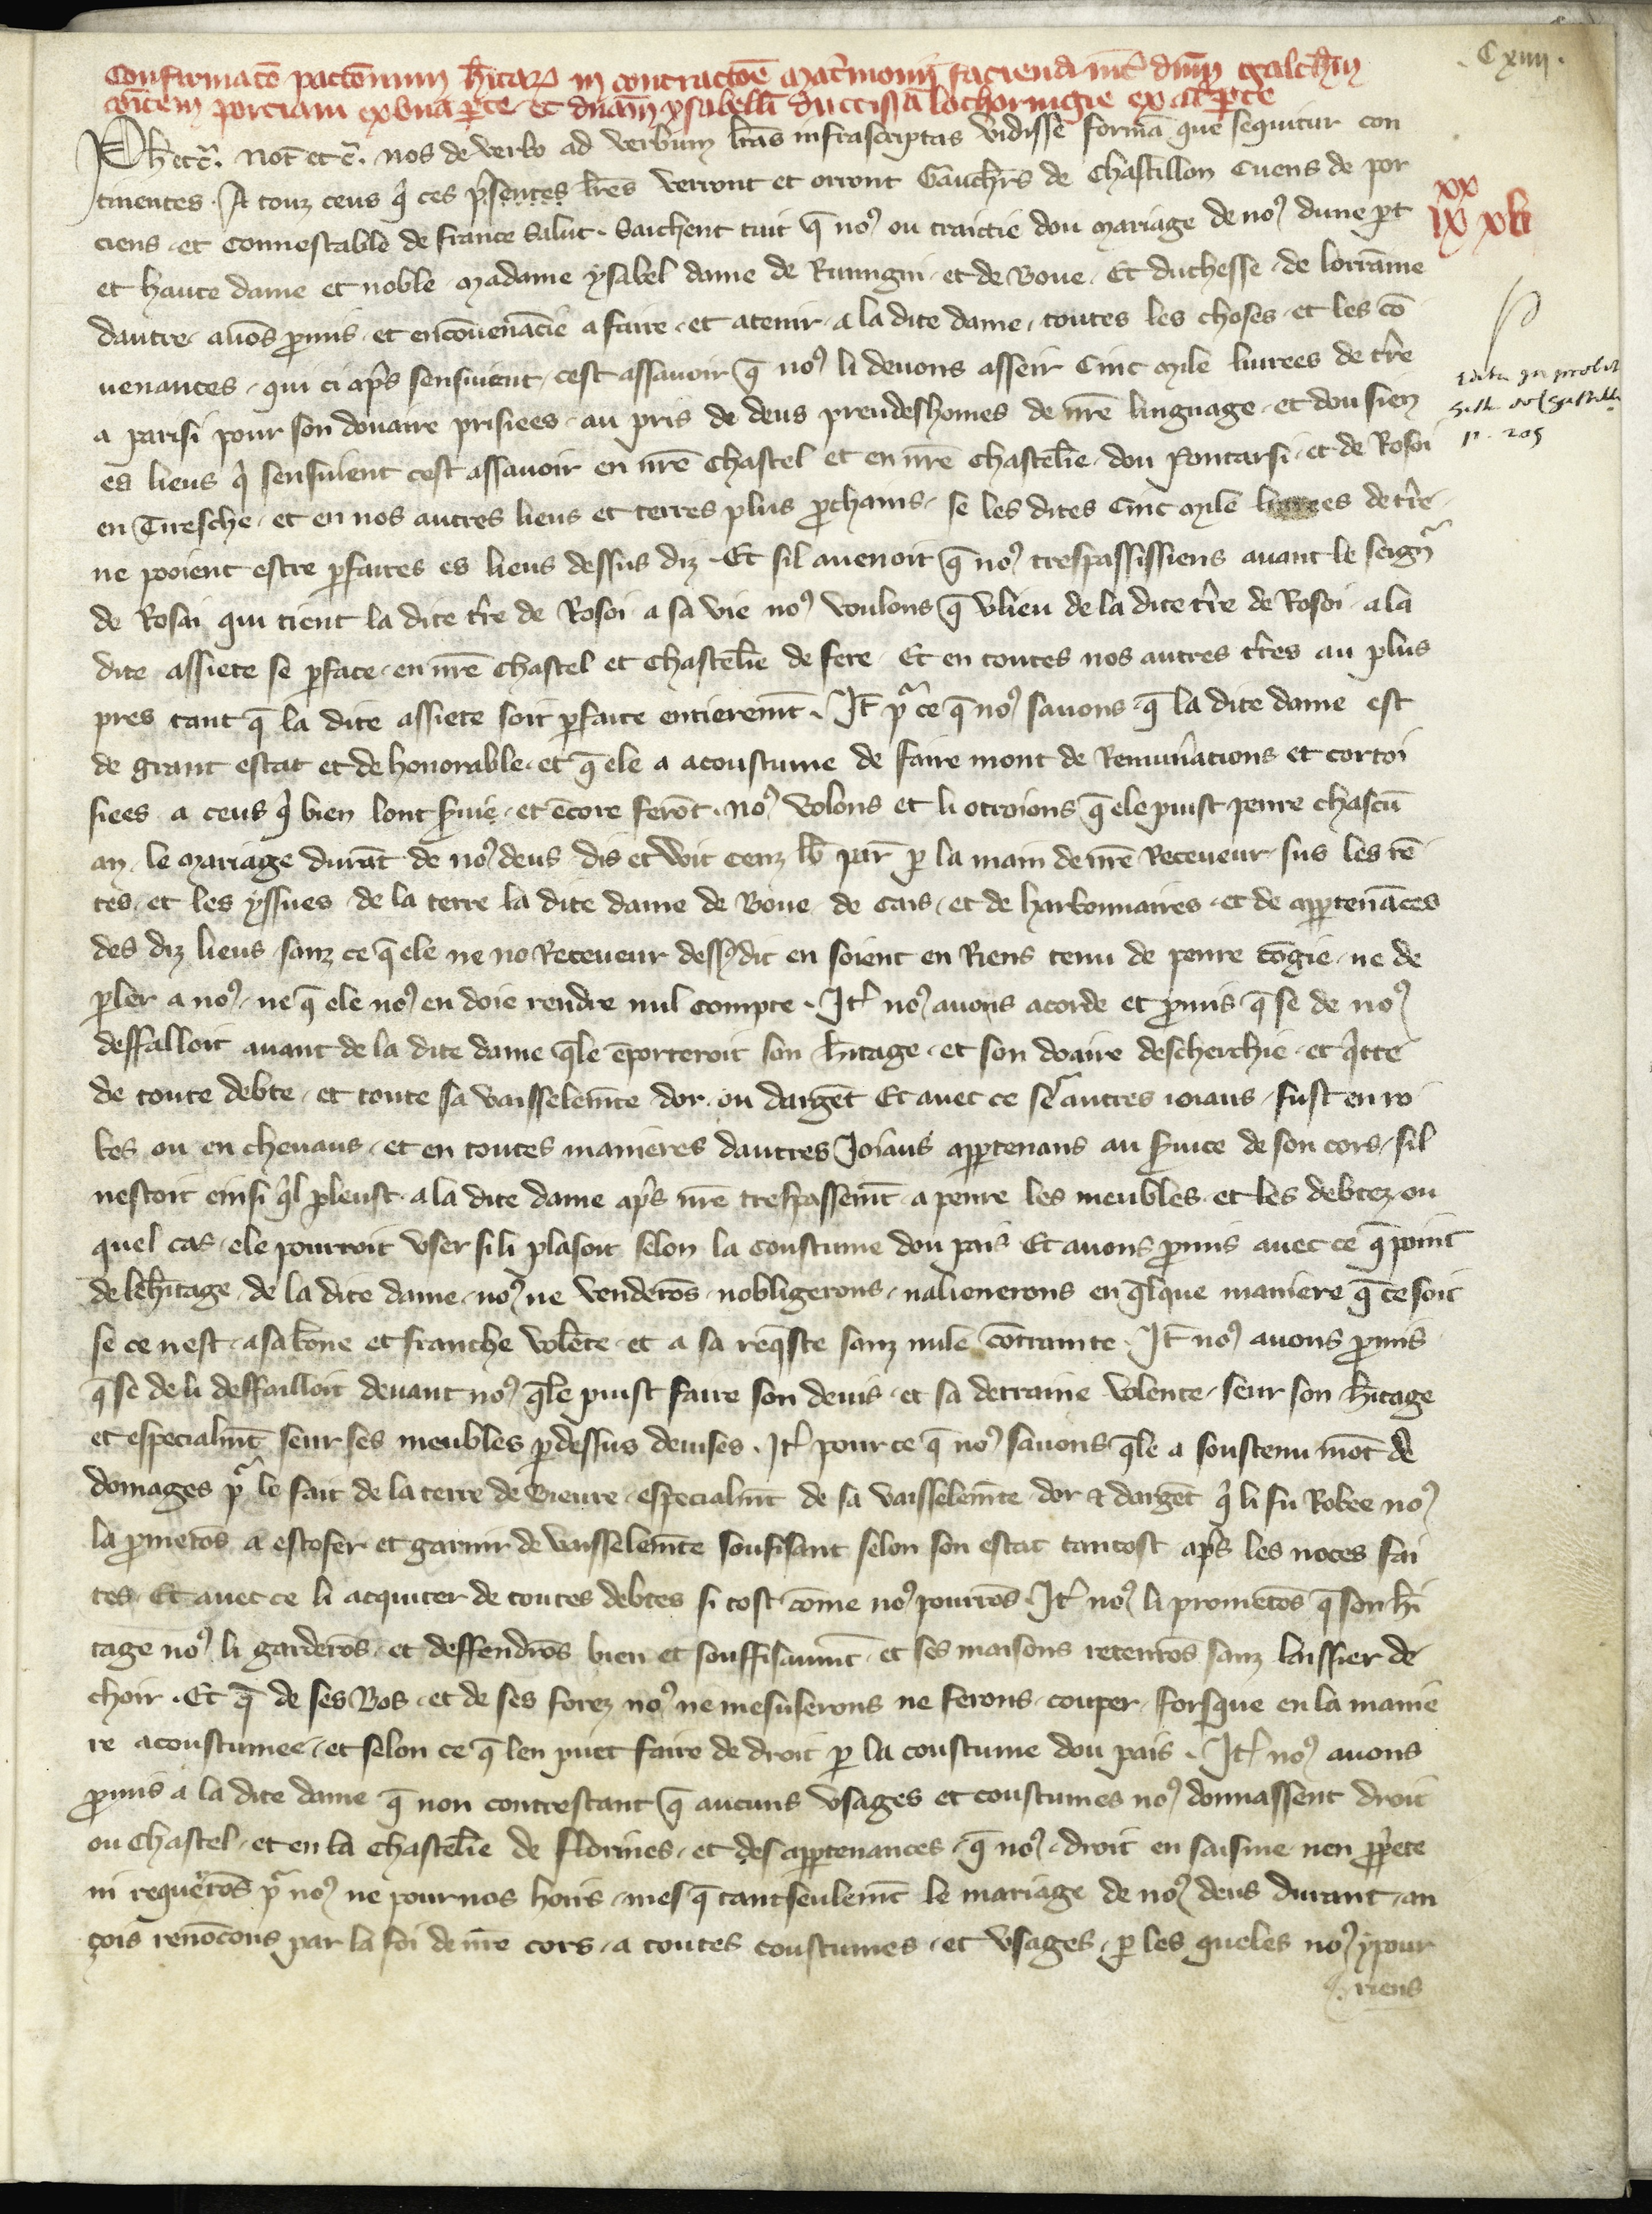 Cxiiii.
Confirmatō pactōnum h̄itarꝝ in contractōe mat̓monii faciendi int̓ dnm̄ Galch̓m
cōitem porciani ex una ꝑte et dnām ysabellā ducissā lothoringie ex alt̓ ꝑte
Ph̄ etc̄. Not̄ etc̄. nos de verbo ad verbum lr̄as infrascriptas vidisse formā que sequitur con
tinentes. A touz ceus q̓ ces p̄sentes lr̄es verront et orront Gauch̓rs de Chastillon Cuens de por
ciens et Connestable de france Salut. Saichent tuit q̄ noꝰ ou traictie dou Mariage de noꝰ dune ꝑt
et haute dame et noble Madame ysabel dame de Rumigni et de Boue. Et duchesse de lorraīne
dautre auōs ꝓmis et encōuenācie a faire et a tenir a la dite dame toutes les choses et les cō
uenances qui ci apr̄s sensuient cest assauoir q̄ noꝰ li deuons asseir Cinc Mile liurees de tr̄re
a parisi pour son douaire prisiees au pris de deus preudeshomes de nr̄e linguage et dou sien
es lieus q̓ sensuient cest assauoir en nr̄e chastel et en nr̄e chastel̄ie dou Pontarsi et de Rosoi
en Tiresche et en nos autres lieus et terres plus ꝓchains se les dites Cinc Mile liurees de tr̄re
ne pooient estre ꝑfaites es lieus dessus diz. Et sil auenoit q̄ noꝰ trespassissiens auant le seignr̄
de Rosai qui tient la dite tr̄re de Rosoi a sa vie noꝰ voulons q̄ v lieu de la dite tr̄re de Rosoi a la
dite assiete se ꝑface en nr̄e chastel et chastel̄ie de fere Et en toutes nos autres tr̄res au plus
pres tant q̄ la dite assiete soit ꝑfaite entierem̄t. It̄ pr̄ ce q̄ noꝰ sauons q̄ la dite dame est
de grant estat et de honorable et q̄ ele a acoustume de faire mont de Remun̓ations et cortoi
siees a ceus q̓ bien lont s̓uie et ēcore ferōt. noꝰ volons et li otroions q̄ ele puist penre chascū
an le Mariage durāt de noꝰ deus dis et wit cenz lb̄ par̄ ꝑ la main de nr̄e Receueur sus les rē
tes et les yssues de la terre la dite dame de Boue de Cais et de harbonnaires et de aꝑtenāces
des diz lieus sanz ce q̄ ele ne no Receueur dessꝰdit en soient en Riens tenu de penre cōgie ne de
ꝑler a noꝰ ne q̄ ele noꝰ en doie rendre nul compte. It̄ noꝰ auons acorde et ꝓmis q̄ se de noꝰ
deffalloit auant de la dite dame q̄le ēporteroit son h̄itage et son doaire descherchie et q̓tte
de toute debte et toute sa vaisselem̄te dor ou dargēt Et auec ce ses autres ioiaus fust en ro
bes ou en cheuaus et en toutes manieres dautres Joiaus aꝑtenans au s̓uice de son cors sil
nestoit einsi q̓l pleust a la dite dame apr̄s nr̄e trespassem̄t a penre les meubles et les debtez ou
quel cas ele pourroit vser si li plasoit selon la coustume dou pais Et auons ꝓmis auec ce q̄ point
de leh̄itage de la dite dame noꝰ ne venderōs nobligerons nalienerons en q̄lque maniere q̄ ce soit
se ce nest a sa bōne et franche volēte et a sa req̄ste sanz nule cōtrainte. It̄ noꝰ auons ꝓmis
q̄ se de li deffailloit deuant noꝰ q̄le puist faire son deuis et sa derraine volente seur son h̄itage
et especialm̄t seur ses meubles ꝑ dessus deuises. It̄ pour ce q̄ noꝰ sauons q̄le a soustenu mōt de
domages pr̄ le fait de la terre de Bieure especialm̄t de sa vaisselem̄te dor & dargēt q̓ li fu Robee noꝰ
la ꝓmetōs a estofer et garnir de vaisselem̄te soufisant selon son estat tantost apr̄s les noces fai
tes Et auec ce li acquiter de toutes debtes si tost cōme noꝰ pourrōs. It̄ noꝰ li prometōs q̄ son h̄i
tage noꝰ li garderōs et deffendrōs bien et souffisaum̄t et ses maisons retenrōs sanz laissier de
choir. Et q̄ de ses Bos et de ses forez noꝰ ne mesuserons ne ferons couper forsque en la manie
re acoustumee et selon ce q̄ len puet faire de droit ꝑ la coustume dou pais. It̄ noꝰ auons
ꝓmis a la dite dame q̄ non contrestant q̄ aucuns vsages et coustumes noꝰ donnassent droit
ou chastel et en la chastel̄ie de florines et des aꝑtenances q̄ noꝰ droit en saisine nen ꝓp̓ete
ni requer̄rōs pr̄ noꝰ ne pour nos hoirs mes q̄ tantseulem̄t le mariage de noꝰ deus durant an
çois renōcons par la foi de nr̄e cors a toutes coustumes et vsages ꝑ les queles noꝰ y pour
riens
xx
ix xli
p. 205